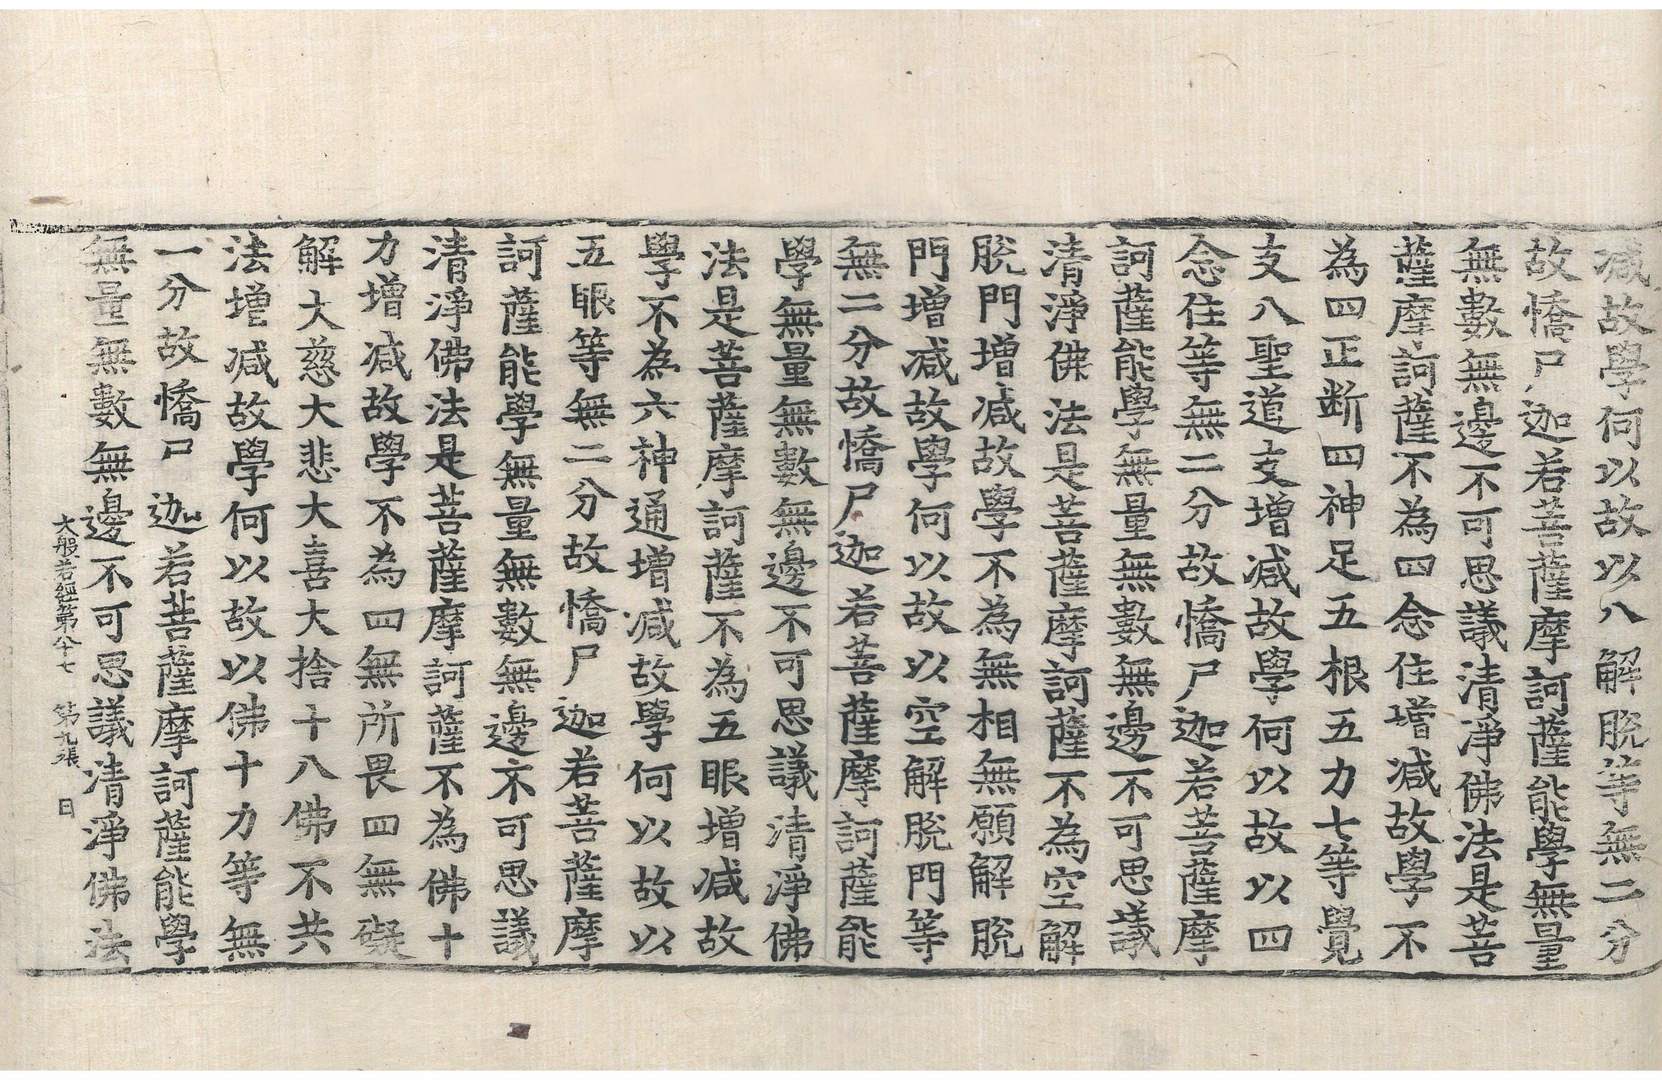 減故學何以故以八解脫等無二分
故憍尸迦若菩薩摩訶薩能學無量
無數無邊不可思議清淨佛法是菩
薩摩訶薩不為四念住增減故學不
為四正斷四神足五根五力七等覺
支八聖道支增減故學何以故以四
念住等無二分故憍尸迦若菩薩摩
訶薩能學無量無數無邊不可思議
清淨佛法是菩薩摩訶薩不為空解
脫門增減故學不為無相無願解脫
門增減故學何以故以空解脫門等
無二分故憍尸迦若菩薩摩訶薩能
學無量無數無邊不可思議清淨佛
法是菩薩摩訶薩不為五眼增減故
學不為六神通增減故學何以故以
五眼等無二分故憍尸迦若菩薩摩
訶薩能學無量無數無邊不可思議
清淨佛法是菩薩摩訶薩不為佛十
力增減故學不為四無所畏四無礙
解大慈大悲大喜大捨十八佛不共
法增減故學何以故以佛十力等無
二分故憍尸迦若菩薩摩訶薩能學
無量無數無邊不可思議清淨佛法
大般若經第八十七 第九張 日